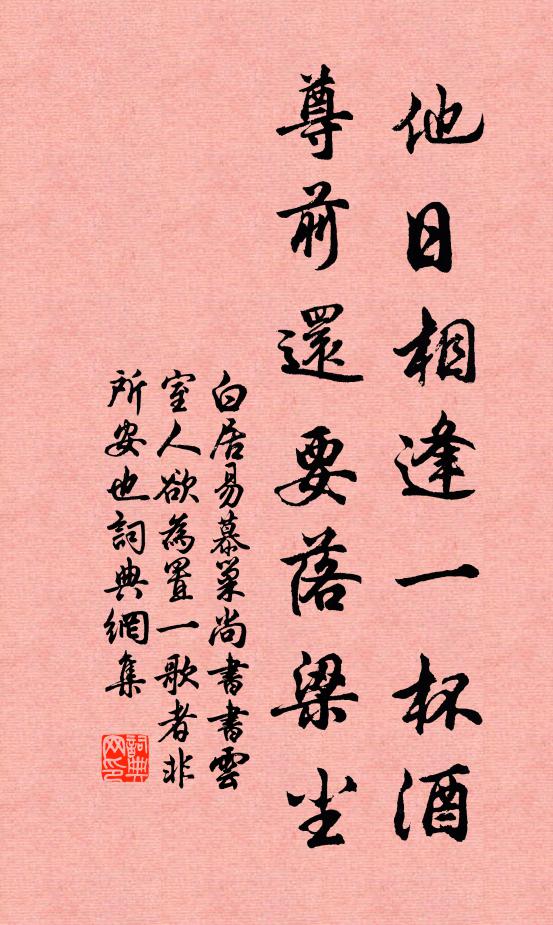 他日相逢一杯酒
尊前還要落梁尘
白居易慕巢尚書書雲
室人欲為置一歌者非
所安也詞典網集
詞典网印